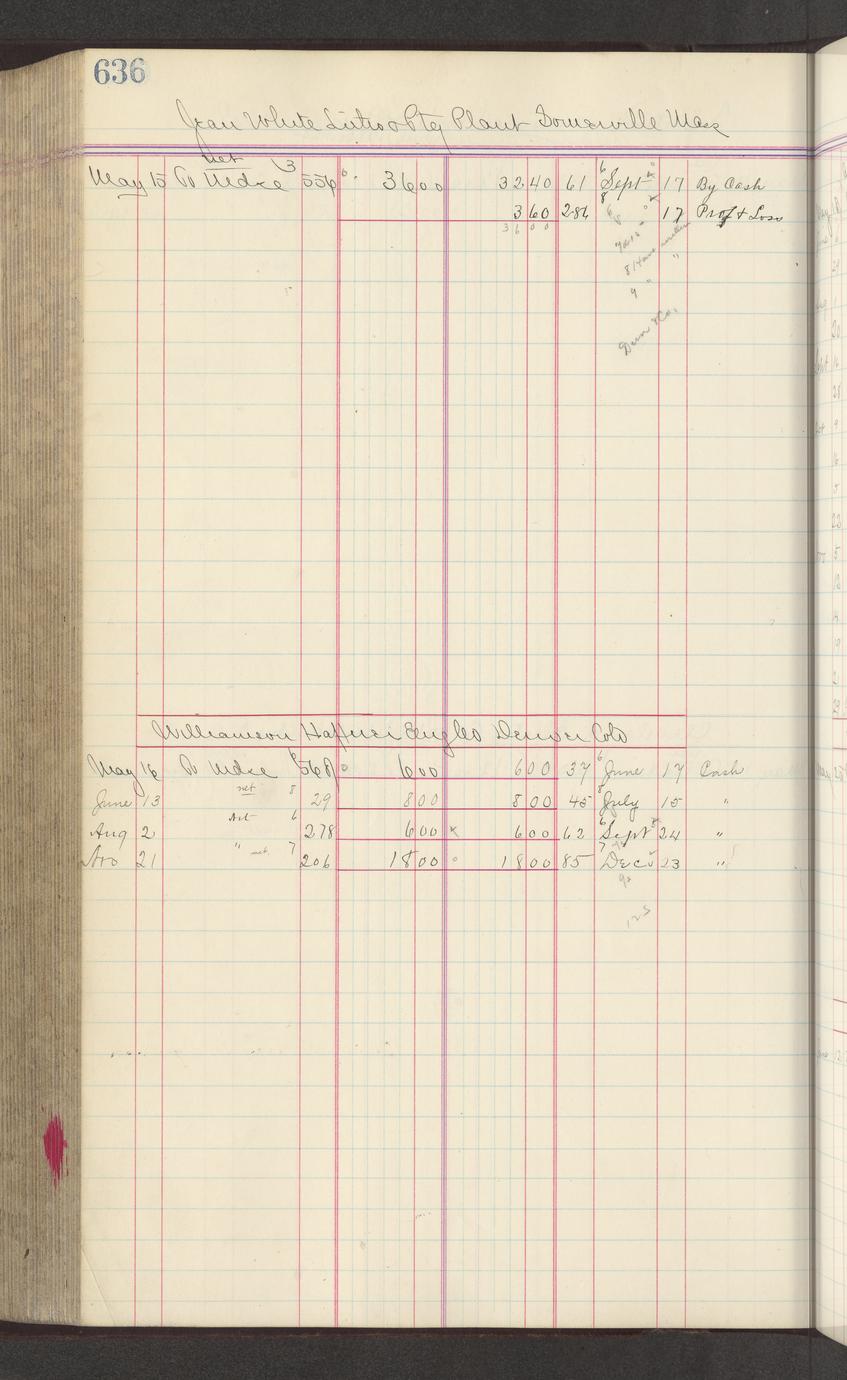 636
Jean White Litho & Ptg Plant Somerville Mass
net 3
May 15 To Mdse 556 3600 3240 61 Sept 17 By Cash
360 286 17 Prof & Loss
3600
9 "
Dun & Co.
Williamson Haffner Eng Co Denver Colo
May 16 To Mdse 568 600 600 37 June 17 Cash
June 13 net 8 29 800 800 45 July 15 "
Aug 2 net 6 278 600 x 600 62 Sept 24 "
Nov 21 " net 7 206 1800 1800 85 Dec 23 "